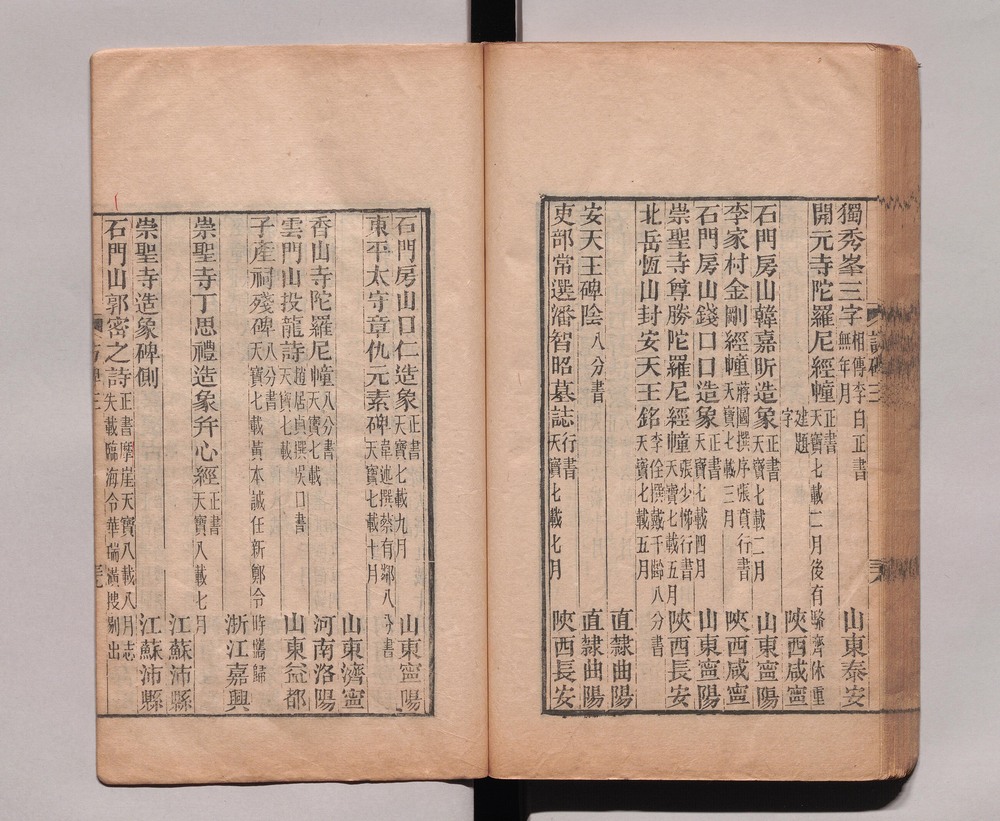 獨秀峯三字 相傳李白正書 無年月 山東泰安
開元寺陀羅尼經幢 天寶七載二月後有駱齊休重建題字 陝西咸寧
石門房山韓嘉昕造象 正書 天寶七載二月 山東寧陽
李家村金剛經幢 蔣國撰序張賁行書 天寶七載三月 陝西咸寧
石門房山錢口口造象 正書 天寶七載四月 山東寧陽
崇聖寺尊勝陀羅尼經幢 張少悌行書 天寶七載五月 陝西長安
北岳恆山封安天王銘 李佺撰戴千齡八分書 天寶七載五月 直隸曲陽
安天王碑陰 八分書 直隸曲陽
吏部常選潘智昭墓誌 行書 天寶七載七月 陝西長安
石門房山口仁造象 正書 天寶七載九月 山東寧陽
東平太守章仇元素碑 韋述撰蔡有鄰八分書 天寶七載十月 山東濟寧
香山寺陀羅尼幢 八分書 天寶七載 河南洛陽
雲門山投龍詩 趙居貞撰 天寶七載 吳口書 山東益都
子產祠殘碑 八分書 天寶七載黃本誠任新鄭令時購歸 浙江嘉興
崇聖寺丁思禮造象并心經 正書 天寶八載七月 江蘇沛縣
崇聖寺造象碑側 江蘇沛縣
石門山郭密之詩 正書摩崖天寶八載八月志失載臨海令華瑞潢搜剔出